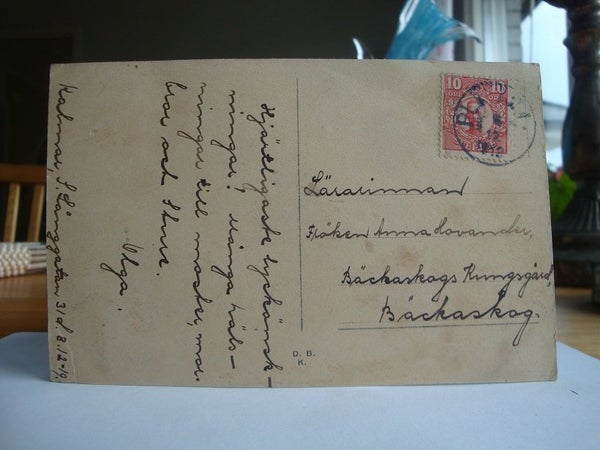 Hjärtligaste lyckönsk-
ningar, Många häls-
ningar till moster, mor-
bror och Sture.
Olga.
Kalmar, S. Långgatan 31 d. 8.12.-19.
10 10
ÖRE ÖRE
Lärarinnan
Fröken Anna Hovander,
Bäckaskogs Kungsgård,
Bäckaskog.
D. B.
K.